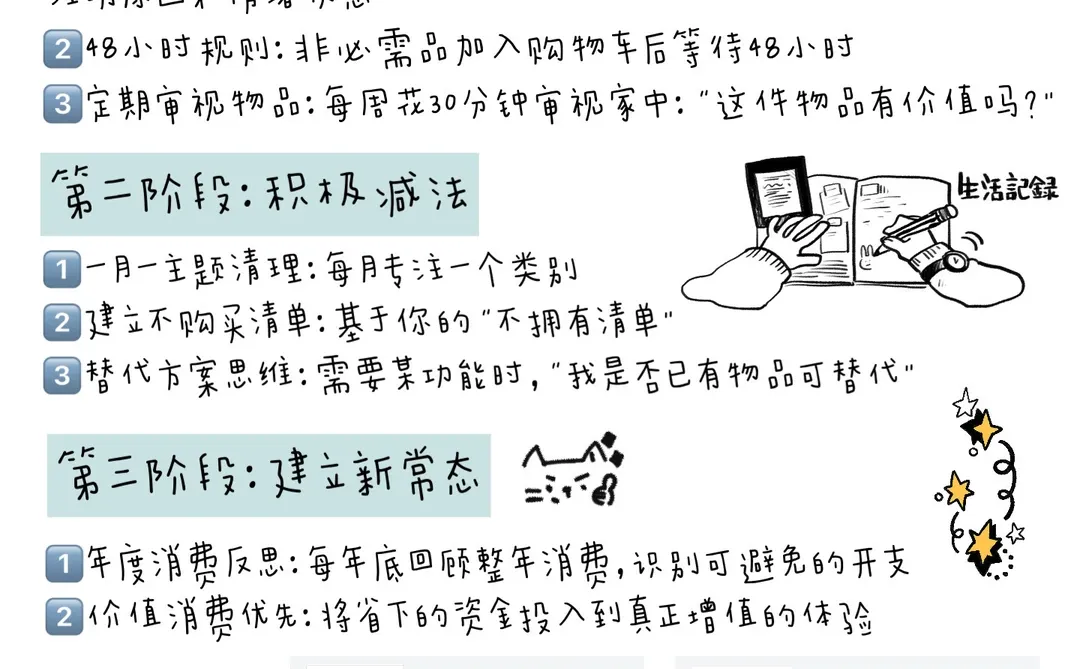 2 48小时规则:非必需品加入购物车后等待48小时
3 定期审视物品:每周花30分钟审视家中:"这件物品有价值吗?"
第二阶段:积极减法
生活記録
1 一月一主题清理:每月专注一个类别
2 建立不购买清单:基于你的"不拥有清单"
3 替代方案思维:需要某功能时,"我是否已有物品可替代"
第三阶段:建立新常态
1 年度消费反思:每年底回顾整年消费,识别可避免的开支
2 价值消费优先:将省下的资金投入到真正增值的体验